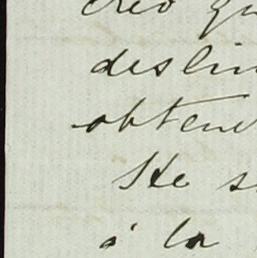 creo qu
deslin
obtene
He s
á la